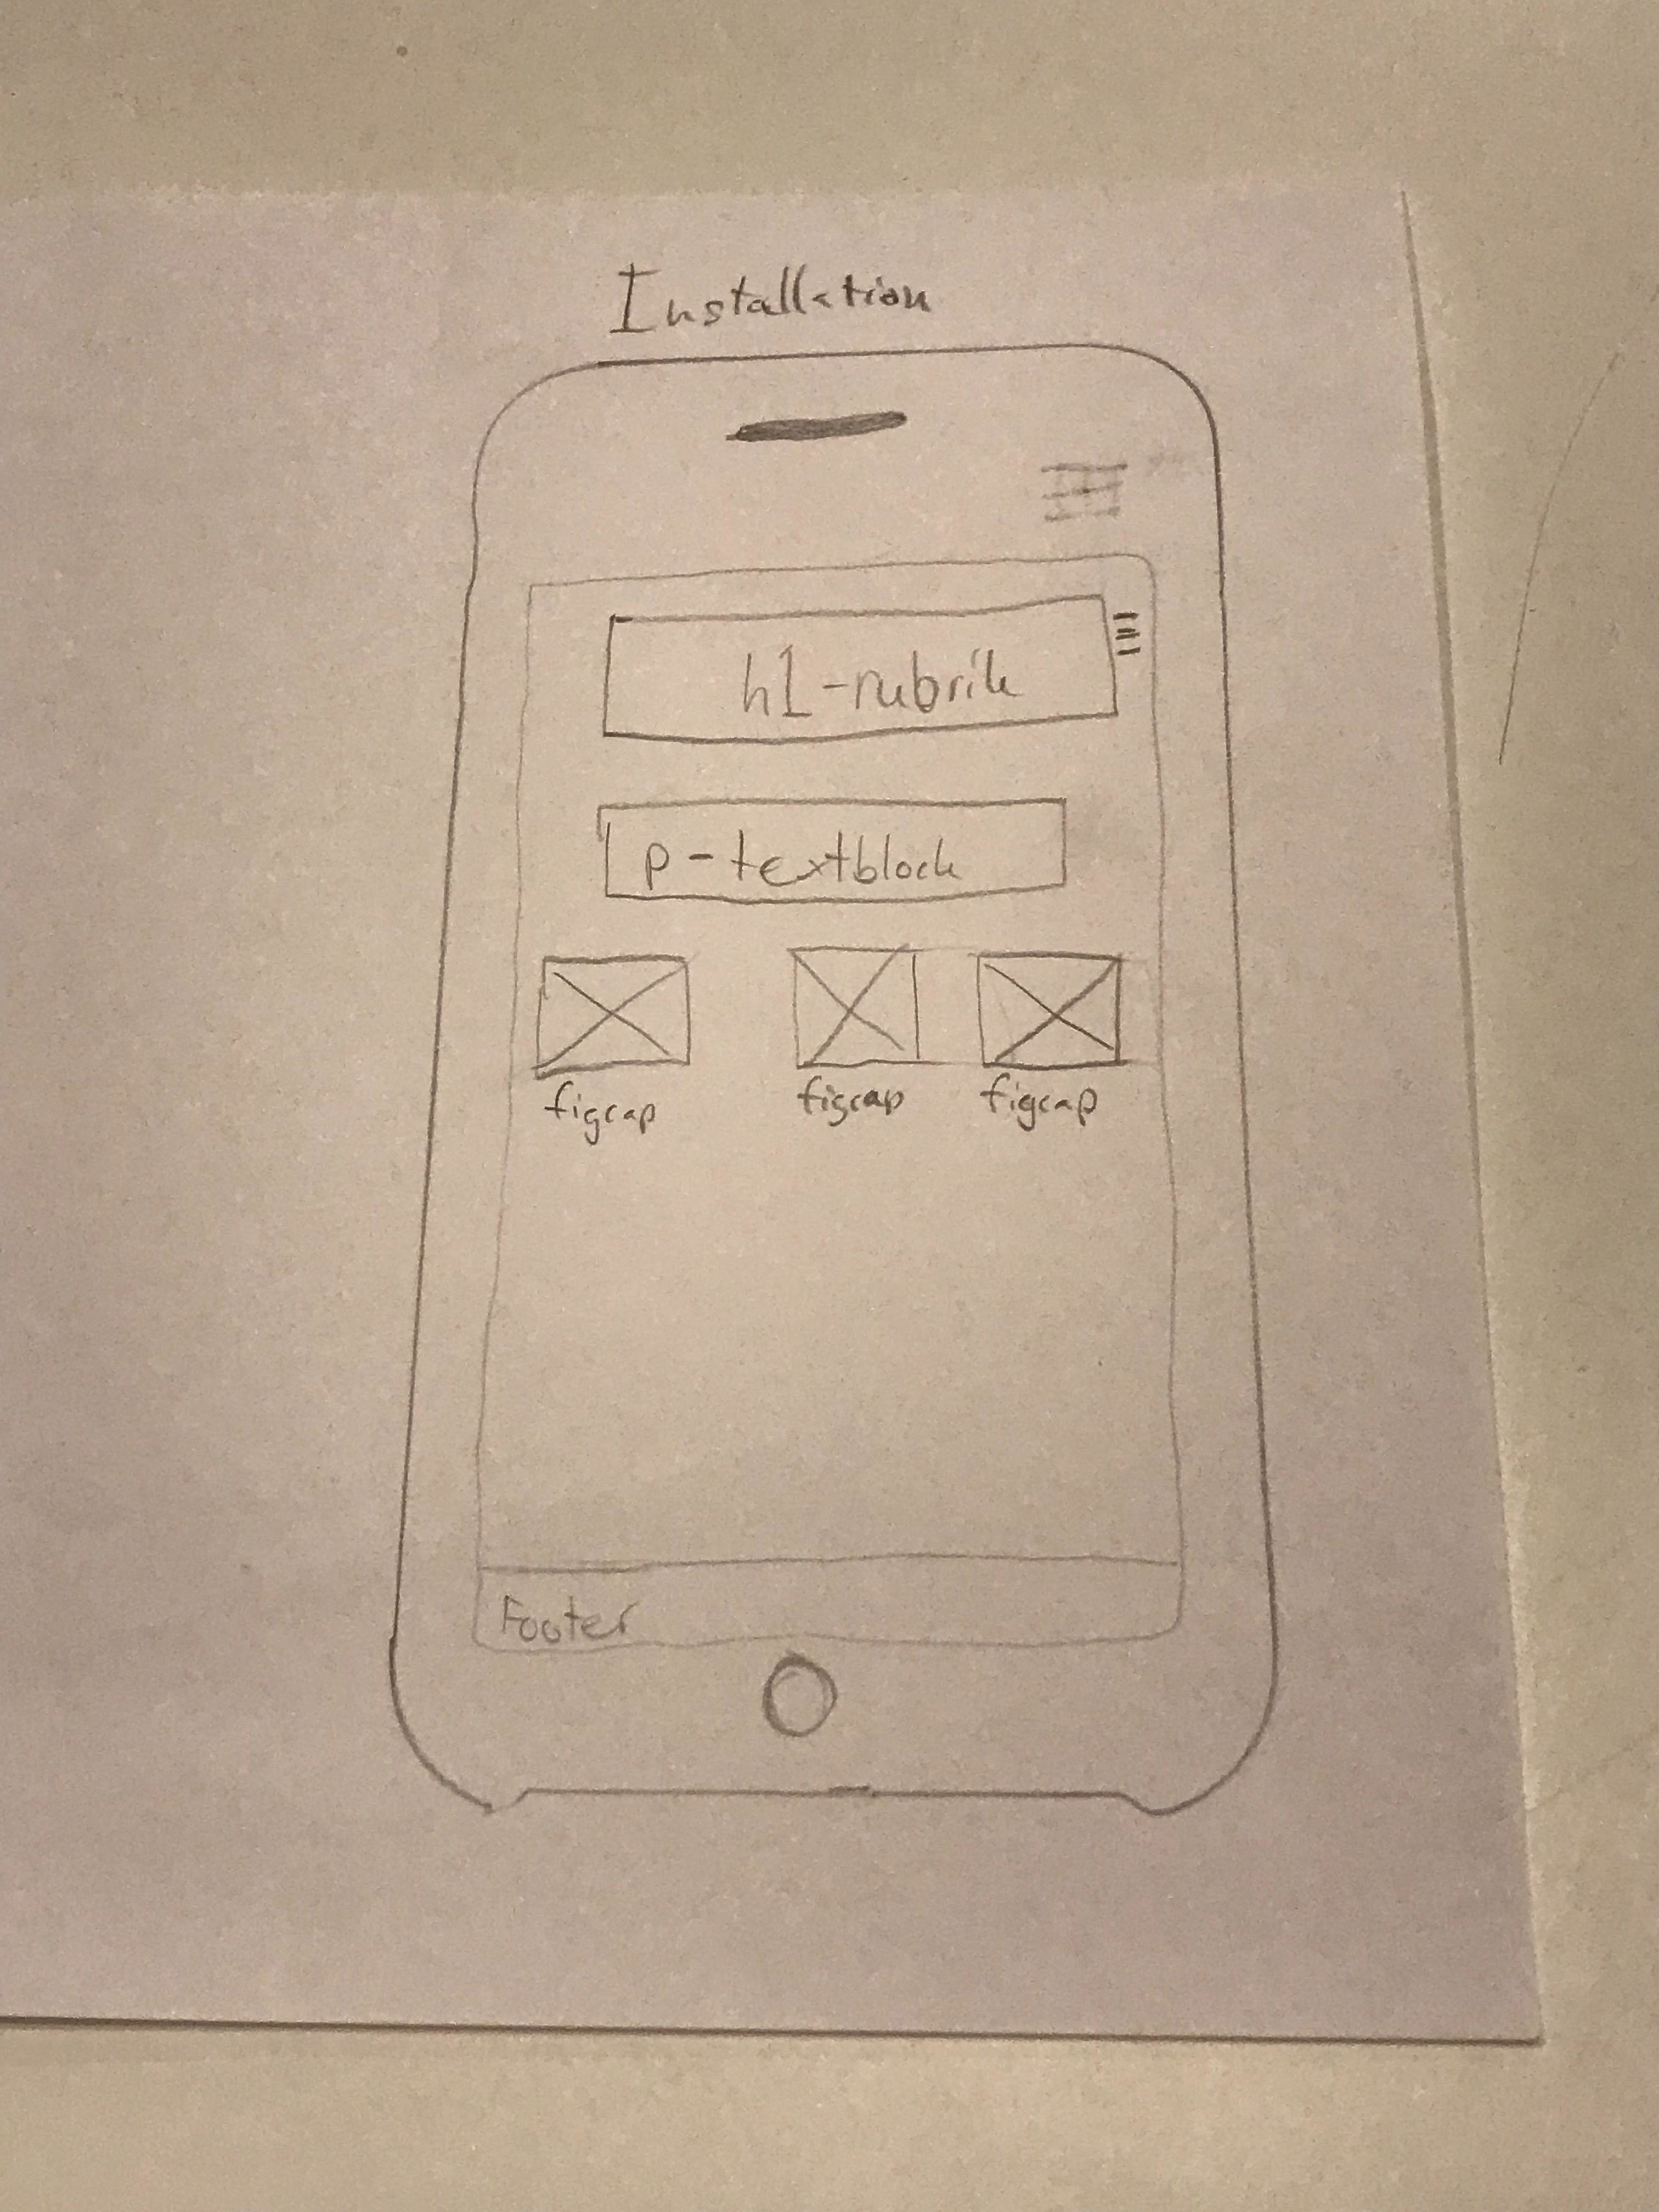 Installation
h1-rubrik
p-textblock
figcap figcap figcap
Footer